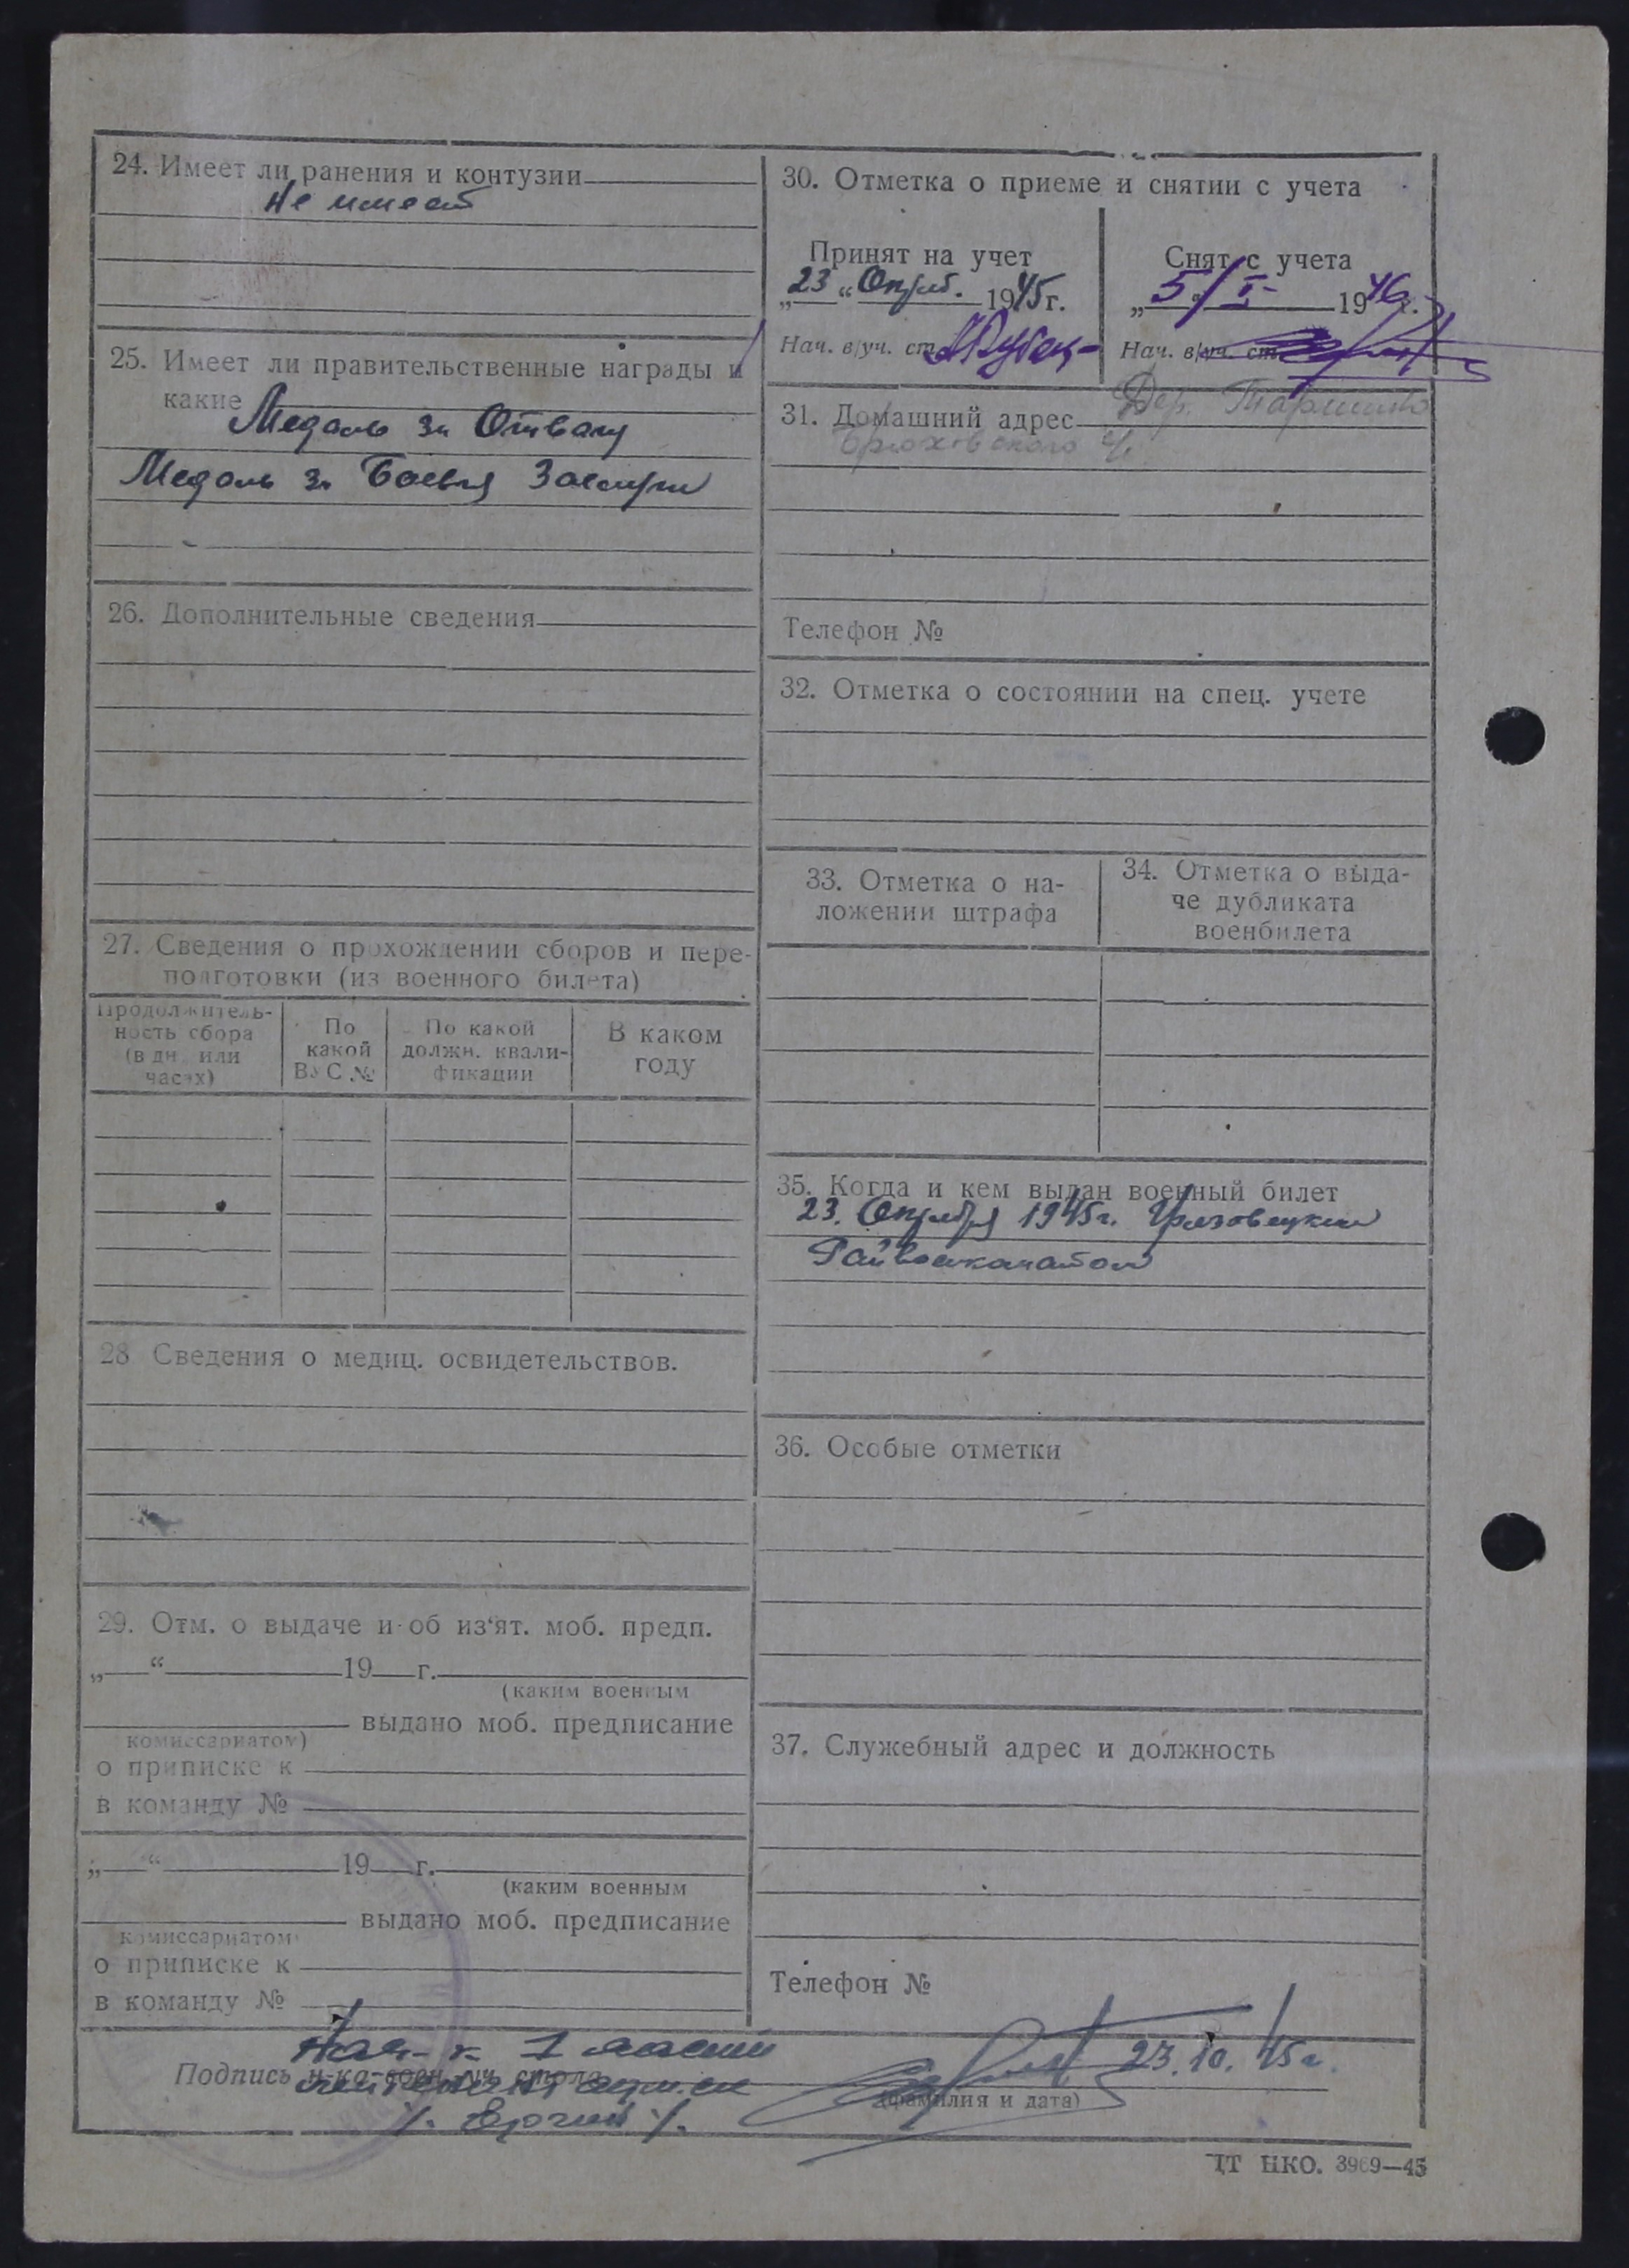 24. Имеет ли ранения и контузии
Не имеет
25. Имеет ли правительственные награды и
какие
Медаль за Отвагу
Медаль за Боевыя Заслуги
26. Дополнительные сведения
27. Сведения о прохождении сборов и пере-
подготовки (из военного билета)
Продолжитель-
ность сбора
(в дн. или
часах)
По
какой
ВУС №
По какой
должн. квали-
фикации
В каком
году
28 Сведения о медиц. освидетельствов.
29. Отм. о выдаче и об из‘ят. моб. предп.
„ “ 19 г.
(каким военным
выдано моб. предписание
комиссариатом)
о приписке к
в команду №
„ “ 19 г.
(каким военным
выдано моб. предписание
комиссариатом
о приписке к
в команду №
30. Отметка о приеме и снятии с учета
Принят на учет
„23“ Октяб. 1945г.
Нач. в/уч. ст.
Снят с учета
„5/I- 1946г.
Нач. в/уч. ст.
31. Домашний адрес Дер.
Брюховского с/с
Телефон №
32. Отметка о состоянии на спец. учете
33. Отметка о на-
ложении штрафа
34. Отметка о выда-
че дубликата
военбилета
35. Когда и кем выдан военный билет
23. Октября 1945г. Грязовецким
Райвоенкоматом
36. Особые отметки
37. Служебный адрес и должность
Телефон №
Нач-к 1 части
Подпись н-ка воен.-уч. стола 23.10.45г.
лейтенант адм. сл
(фамилия и дата)
ЦТ НКО. 3969—45